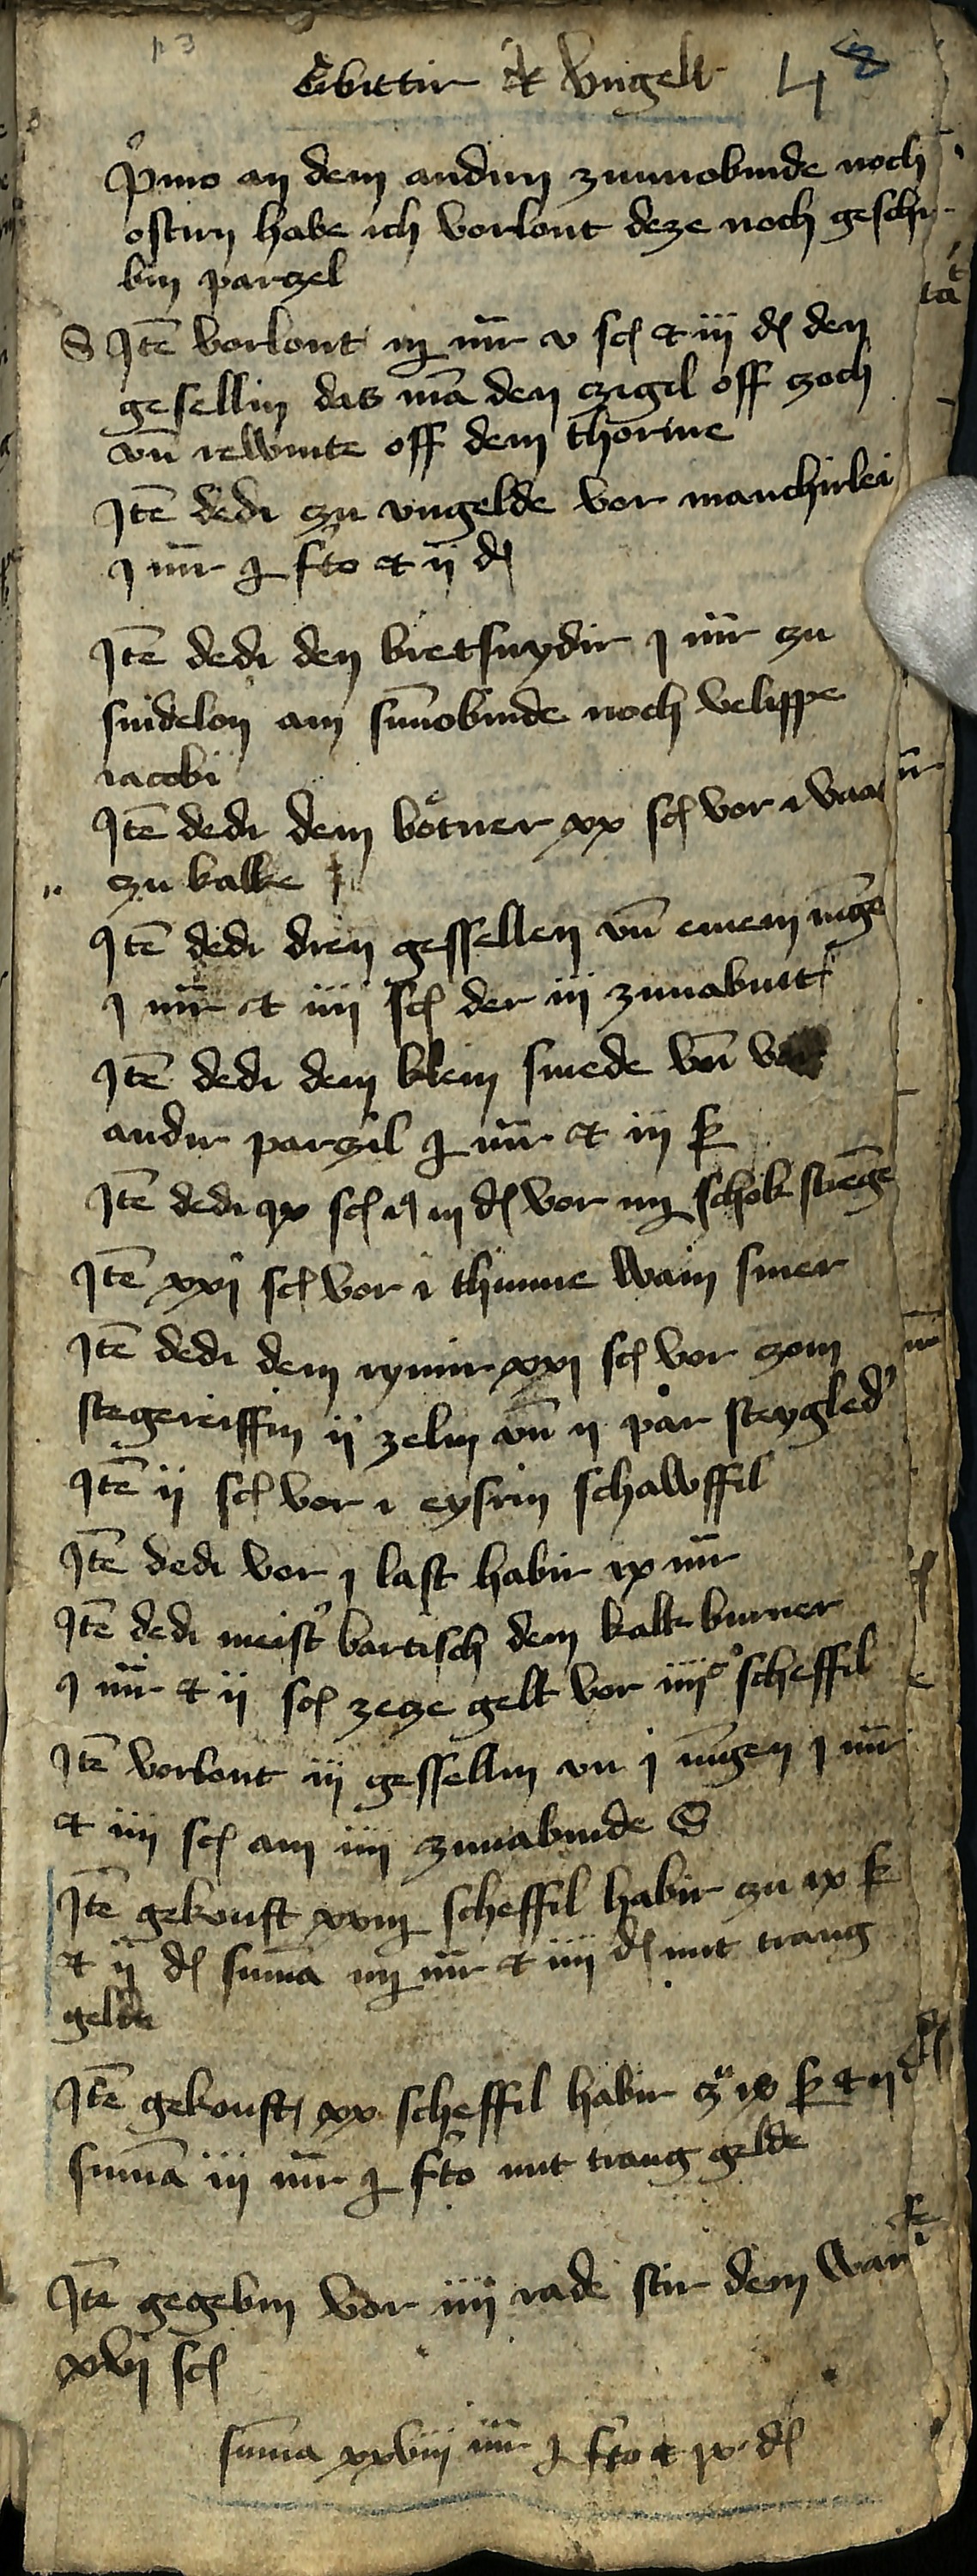 Erbittir et vngelt 48
Primo an dem andirn zunnobinde noch
ostirn habe ich vorlont deze noch geschr
bin parzel
S Item vorlont iij mr v sch et iii d den
gesellin das ma den czigil off czoch
vn off dem thorme
Item dedi czu vngelde vor manchirlei
j mr j fto et ij d
Item dedi den bretsnydir j mr zu
snidelon am sunnobinde noch velippe
iacobi
Item dedi dem botner xx sch vor i vaas
zu kalke
Item dedi dren gessellen vn einem
j mr et iiii sch der iii zunabint
Item dedi dem klein smede von
andir parzil j mr et iij sk
Item dedi ix sch iij d vor schok stenge
Item xxi sch vor i thunne wain smer
Item dedi dem rymir xxi sch vor zom
stegereiffin ij zelin vn ij par steygled
Item ij sch vor i eysrin schawffil
Item dedi vor j last habir ix mr
Item dedi meistir bartisch dem kalk burner
j mr et ij sch zeze gelt vor iiijc scheffil
Item vorlont iij gessellin vn j j mr
et iiii sch am iiii zunabinde S
Item gekouft scheffil habir zu ix sk
et ij d summa mr et iiii d mit trang
gelde
Item gekouft xx scheffil habir zu ix sk et ij d
summa iii mr j fto mit trang gelde
Item gegebin vor iiij rade stir dem
xvj sch
summa xxviii mr j fto et ix d